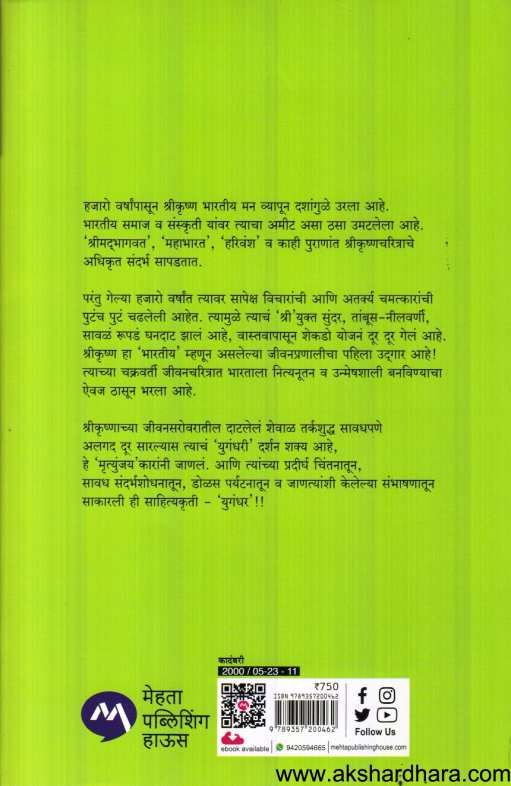 हजारो वर्षांपासून श्रीकृष्ण भारतीय मन व्यापून दशांगुळे उरला आहे.
भारतीय समाज व संस्कृती यांवर त्याचा अमीट असा ठसा उमटलेला आहे.
‘श्रीमद्‌भागवत’, ‘महाभारत’, ‘हरिवंश’ व काही पुराणांत श्रीकृष्णचरित्राचे
अधिकृत संदर्भ सापडतात.
परंतु गेल्या हजारो वर्षांत त्यावर सापेक्ष विचारांची आणि अतर्क्य चमत्कारांची
पुटंच पुटं चढलेली आहेत. त्यामुळे त्याचं ‘श्री’युक्त सुंदर, तांबूस-नीलवर्णी,
सावळं रूपडं घनदाट झालं आहे, वास्तवापासून शेकडो योजनं दूर दूर गेलं आहे.
श्रीकृष्ण हा ‘भारतीय’ म्हणून असलेल्या जीवनप्रणालीचा पहिला उद्‌गार आहे!
त्याच्या चक्रवर्ती जीवनचरित्रात भारताला नित्यनूतन व उन्मेषशाली बनविण्याचा
ऐवज ठासून भरला आहे.
श्रीकृष्णाच्या जीवनसरोवरातील दाटलेलं शेवाळ तर्कशुद्ध सावधपणे
अलगद दूर सारल्यास त्याचं ‘युगंधरी’ दर्शन शक्य आहे,
हे ‘मृत्युंजय’कारांनी जाणलं. आणि त्यांच्या प्रदीर्घ चिंतनातून,
सावध संदर्भशोधनातून, डोळस पर्यटनातून व जाणत्यांशी केलेल्या संभाषणातून
साकारली ही साहित्यकृती – ‘युगंधर’!!
कादंबरी
2000 / 05-23 - 11
₹750
ISBN 9789357200462
9 789357 200462
मेहता
पब्लिशिंग
हाऊस
Follow Us
ebook available
9420594665
mehtapublishinghouse.com
www.akshardhara.com